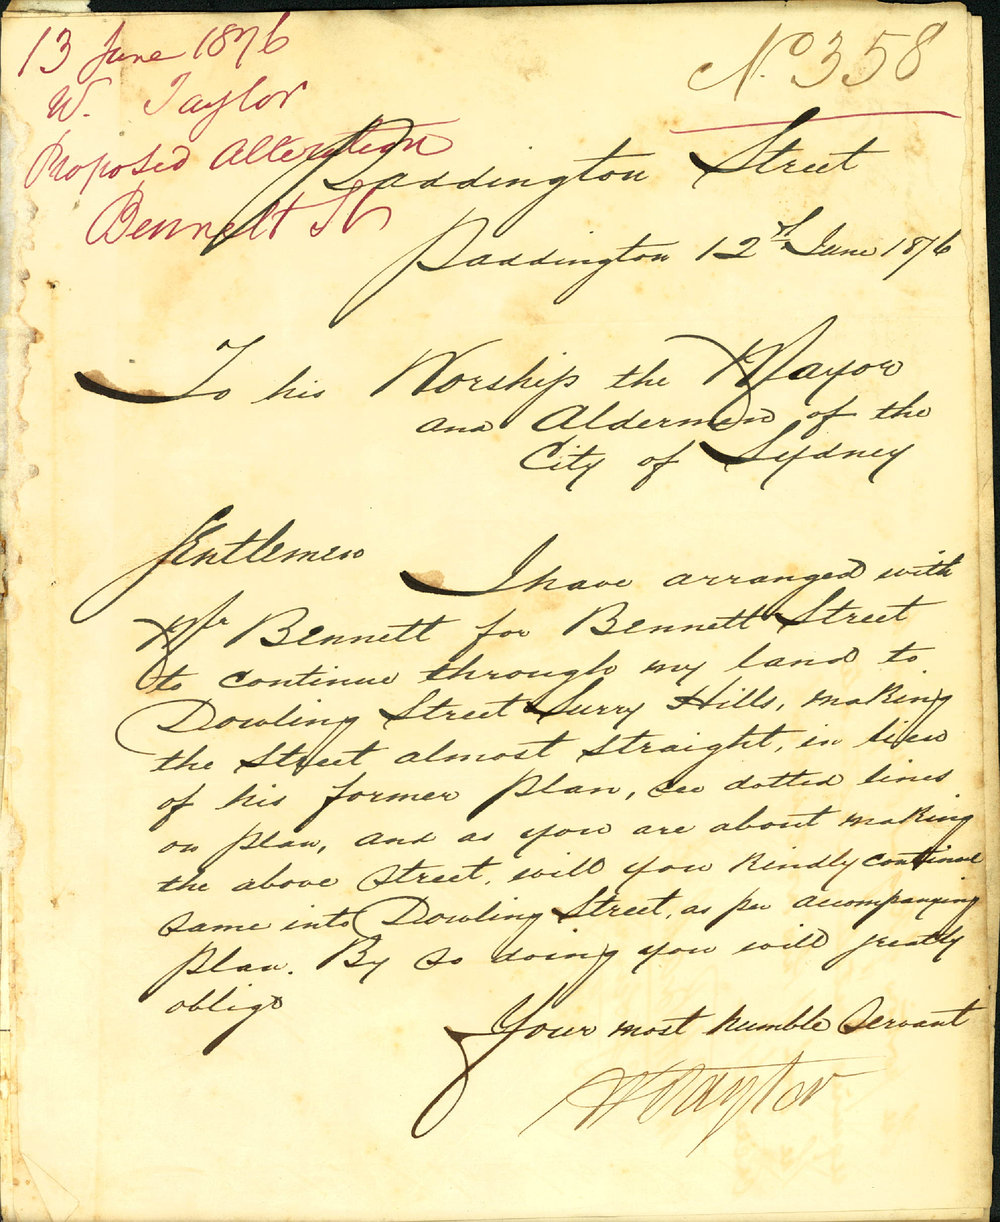 13 June 1876
W. Taylor
Proposed Alteration
Bennett St
No. 358
Paddington Street
Paddington 12th June 1876
To his Worship the Mayor
and Aldermen of the
City of Sydney
Gentlemen
I have arranged with
Mr Bennett for Bennett Street
to continue through my land to
Dowling Street Surry Hills, making
the Street almost straight, in lieu
of his former Plan, see dotted lines
on plan, and as you are about making
the above Street, will you kindly continue
same into Dowling Street, as per accompanying
plan. By so doing you will greatly
oblige
Your most humble Servant
W Taylor